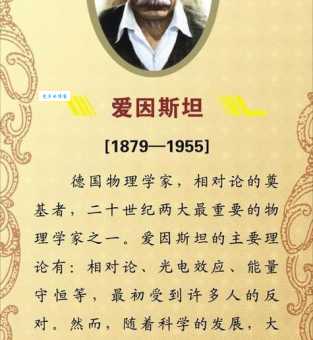 爱因斯坦
[1879—1955]
德国物理学家，相对论的奠
基者，二十世纪两大最重要的物
理学家之一。爱因斯坦的主要理
论有：相对论、光电效应、能量
守恒等，最初受到许多人的反
对。然而，随着科学的发展，大